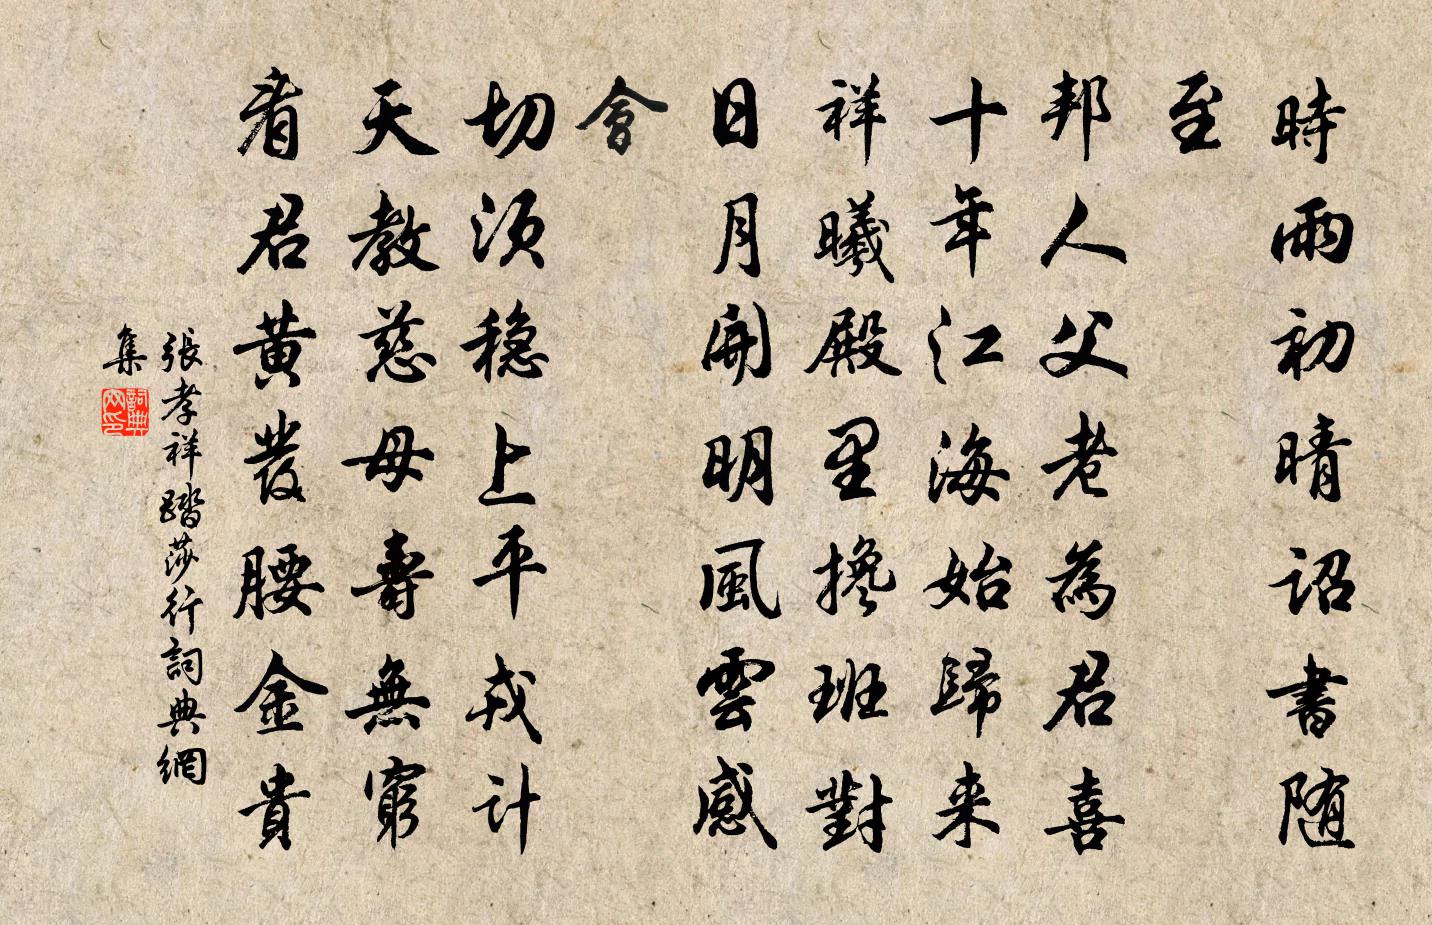 時雨初晴詔書随
至
邦人父老為君喜
十年江海始歸来
祥曦殿里搀班對
日月開明風雲感
會
切須穏上平戎计
天教慈母壽無窮
看君黄發腰金貴
張孝祥踏莎行詞典網
集
詞典
网印